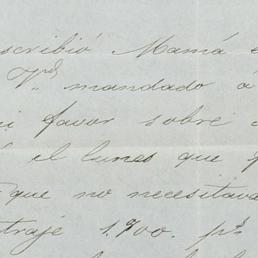 scribió Mamá
Vd. mandado á
favor sobre
el lunes que
que no necesitava
traje 1,900. ps